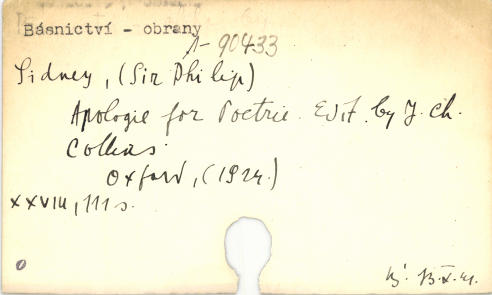 Básnictví - obrany
A-90433
Sidney, (Sir Philip)
Apologie for Poetrie. Edit. by J. Ch.
Collins.
Oxford, (1924.)
XXVIII, 111 s.
13.X.41.